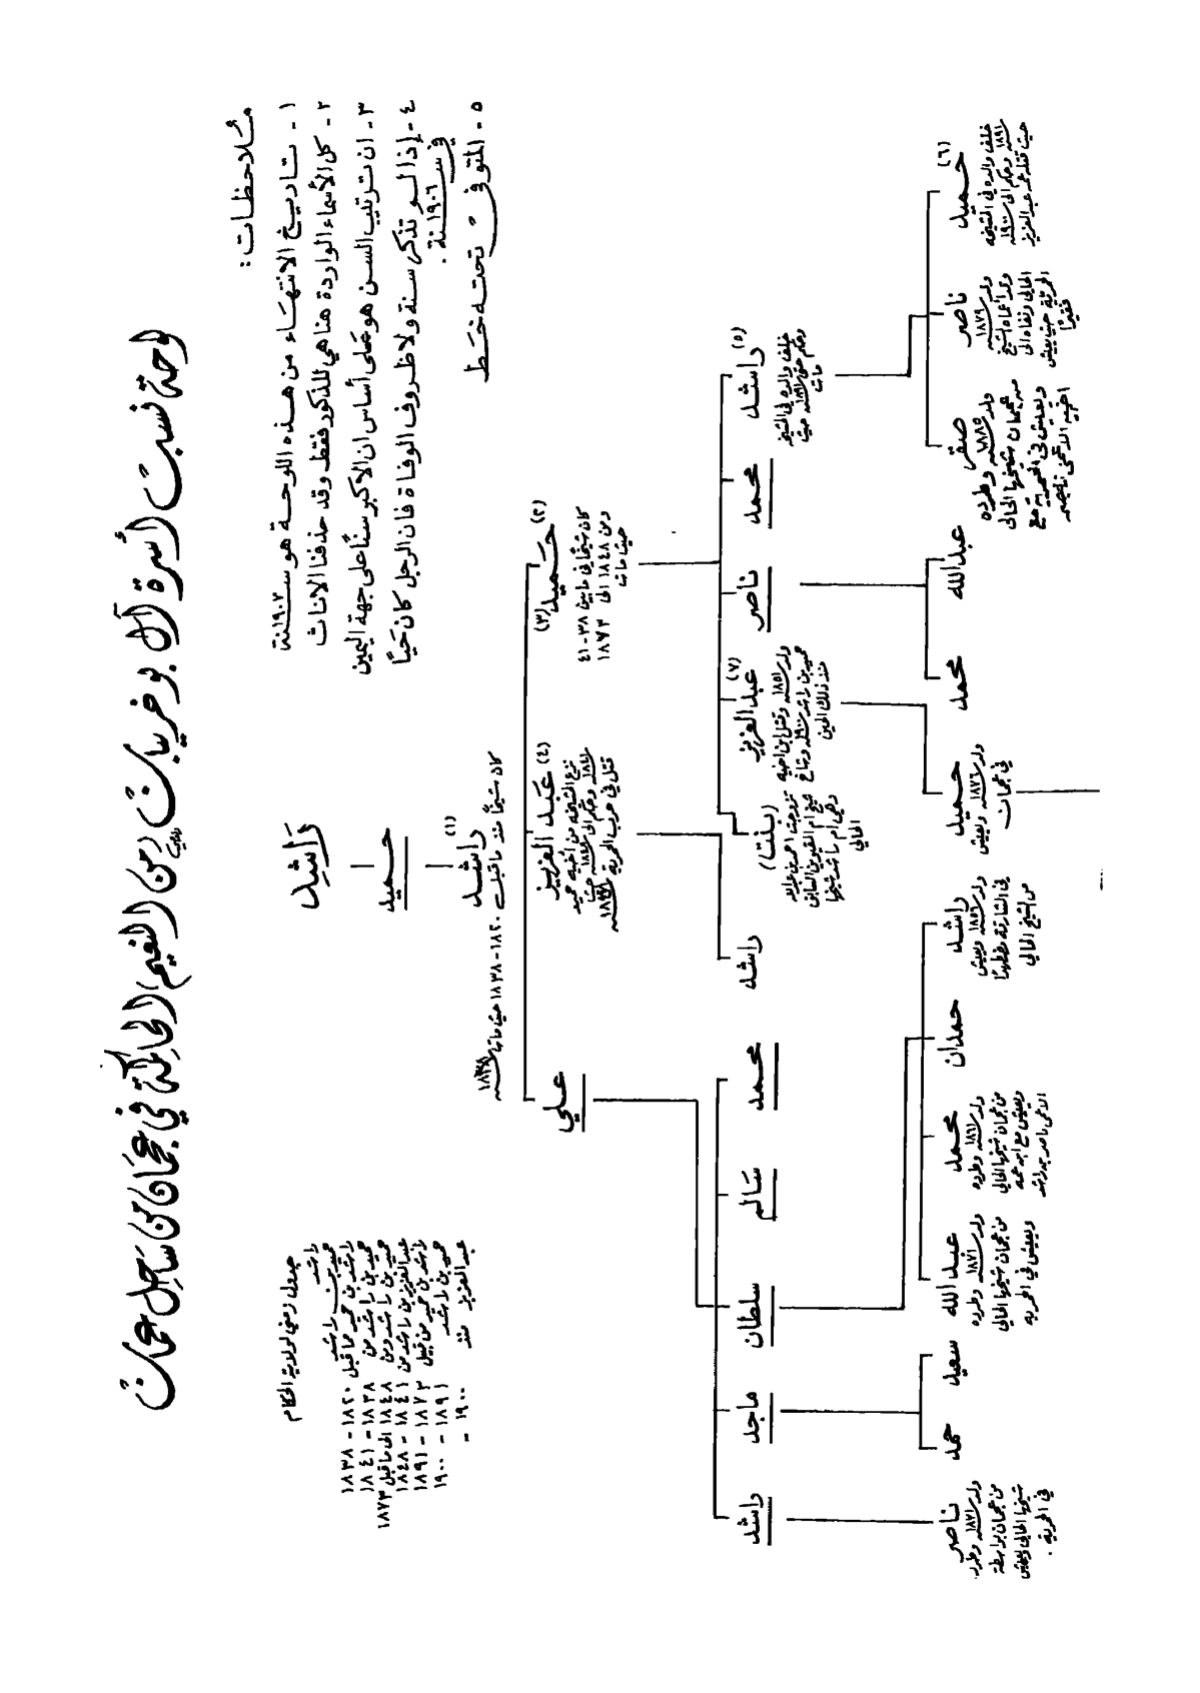 لوحة نسب أسرة آل بو خريبان (من النعيم) الحاكمة في عجمان من ساحل عمان
ملاحظات :
١ - تاريخ الانتهاء من هذه اللوحة هو سنة ١٩٠٢
٢ - كل الأسماء الواردة هنا هي للذكور فقط وقد حذفنا الاناث
٣ - ان ترتيب السن هو على أساس ان الأكبر سنًا على جهة اليمين
٤ - إذا لم تذكر سنة ولا ظروف الوفاة فان الرجل كان حيًا
في سنة ١٩٠٦ .
٥ - المتوفى تحته خط
جدول زمني لولاية الحكام
راشد
حميد بن راشد
١٨٢٠ - ١٨٣٨ راشد بن حميد ما قبل
١٨٣٨ - ١٨٤١ حميد بن راشد من
١٨٤١ - ١٨٤٨ عبد العزيز بن راشد من
١٨٤٨ الى ما قبل ١٨٧٣ حميد بن راشد من
١٨٧٣ - ١٨٩١ راشد بن حميد من قبيل
١٨٩١ - ١٩٠٠ حميد بن راشد
١٩٠٠ - عبد العزيز منذ
راشد
حميد
راشد (١)
كان شيخًا منذ ما قبل ١٨٢٠ - ١٨٣٨ حيث مات
سنة ١٨٣٨
حميد (٢) (٣)
كان شيخًا في ما بين ٣٨ - ٤١
ومن ١٨٤٨ الى ١٨٧٣
حيث مات
عبد العزيز (٤)
نزع الشيخة من أخيه حميد
سنة ١٨٤١ وحكم الى سنة ١٨٤٨ حيث
قتل في حرب الحمرية
علي
راشد (٥)
خلف والده في الشيخة
وحكم حتى سنة ١٨٩١ حيث
مات
محمد
ناصر
عبد العزيز (٧)
ولد سنة ١٨٥١ وقتل ابن اخيه
حميد بن راشد سنة ١٩٠٠ وشاخ
منذ ذلك الحين
(بنت)
تزوجت احمد بن عبدالله
شيخ ام القيوين السابق
وهي ام راشد شيخها
الحالي
راشد
محمد
سالم
سلطان
ماجد
راشد
حميد (٦)
خلف والده في الشيخة
سنة ١٨٩١ وحكم الى سنة ١٩٠٠
حيث قتله عمه عبد العزيز
ناصر
ولد سنة ١٨٧٩
وقد أعماه الشيخ
الحالي ونفاه الى
الحمرية حيث يعيش
فقيرًا
صقر
ولد سنة ١٨٨٩ وطرده
من عجمان شيخها الحالي
ويعيش في الحمرية مع
اخيه الاعمى ناصر
عبدالله
محمد
حميد
ولد سنة ١٨٧٦ ويعيش
في عجمان
راشد
ولد سنة ١٨٥٦ ويعيش
في الشارقة مطرودًا
من الشيخ الحالي
حمدان
محمد
ولد سنة ١٨٦١ وطرده
من عجمان شيخها الحالي
ويعيش مع ابن عمه
الاعمى ناصر بن راشد
عبد الله
ولد سنة ١٨٧١ وطرده
من عجمان شيخها الحالي
ويعيش في الحمرية
سعيد
حمد
ناصر
ولد سنة ١٨٧١ وطرد
من عجمان بواسطة
شيخها الحالي ويعيش
في الحمرية .